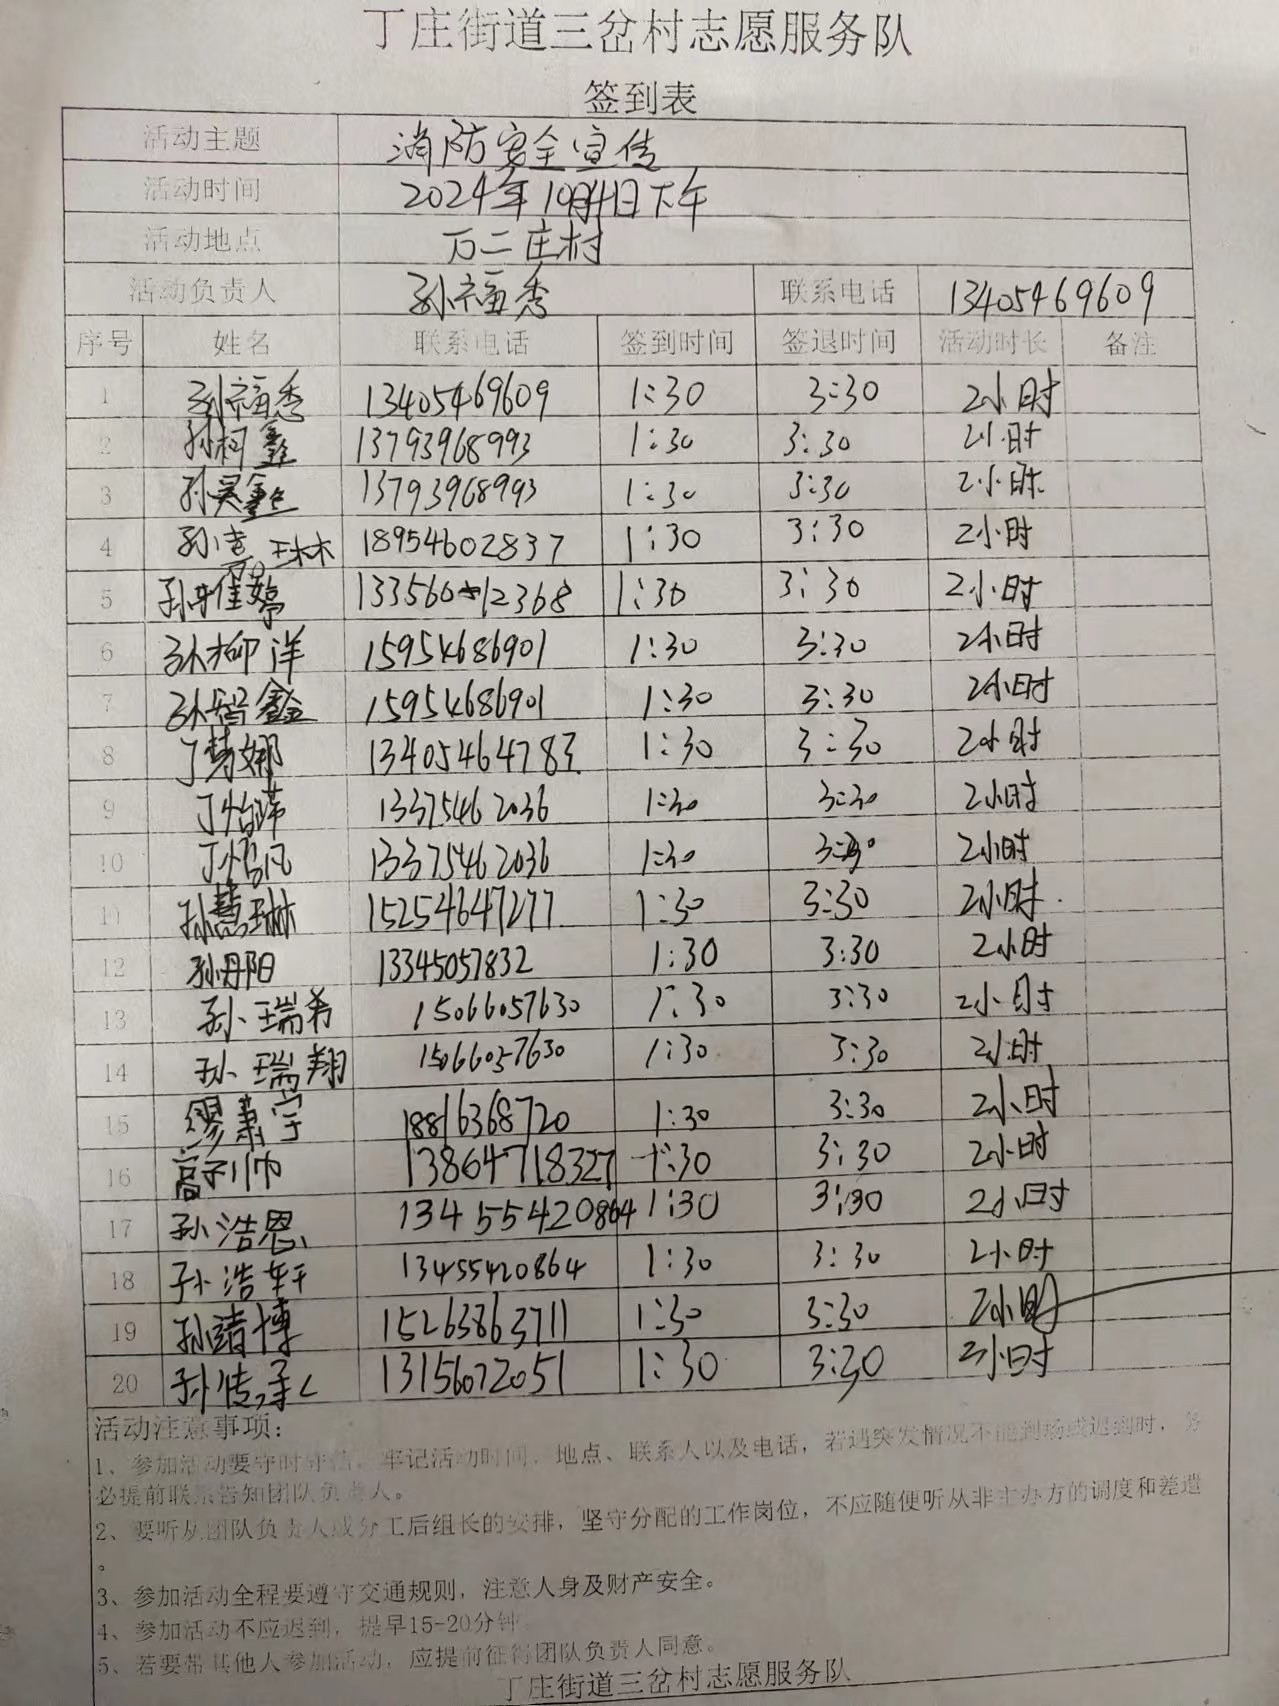 丁庄街道三岔村志愿服务队
签到表
活动主题 消防安全宣传
活动时间 2024年10月4日下午
活动地点 万二庄村
活动负责人 孙福秀 联系电话 13405469609
序号 姓名 联系电话 签到时间 签退时间 活动时长 备注
1 孙福秀 13405469609 1:30 3:30 2小时
2 孙柯鑫 13793968993 1:30 3:30 2小时
3 孙昊鑫 13793968993 1:30 3:30 2小时
4 孙 琳 18954602837 1:30 3:30 2小时
5 孙 婷 1:30 3:30 2小时
6 孙柳洋 15954686901 1:30 3:30 2小时
7 孙智鑫 15954686901 1:30 3:30 2小时
8 丁梦娜 13405464783 1:30 3:30 2小时
9 丁怡萍 13375462036 1:30 3:30 2小时
10 丁 凡 13375462036 1:30 3:30 2小时
11 孙慧琳 15254647277 1:30 3:30 2小时
12 孙丹阳 13345057832 1:30 3:30 2小时
13 孙瑞希 15066057630 1:30 3:30 2小时
14 孙瑞翔 15066057630 1:30 3:30 2小时
15 缪萧宇 18816368720 1:30 3:30 2小时
16 高子川帅 13864718327 1:30 3:30 2小时
17 孙浩恩 13455420864 1:30 3:30 2小时
18 孙浩轩 13455420864 1:30 3:30 2小时
19 孙靖博 15263863711 1:30 3:30 2小时
20 孙传 13156072051 1:30 3:30 2小时
活动注意事项：
1、参加活动要守时守信，牢记活动时间，地点、联系人以及电话，若遇突发情况不能到场或迟到时，务
必提前联系告知团队负责人。
2、要听从团队负责人或分工后组长的安排，坚守分配的工作岗位，不应随便听从非主办方的调度和差遣
。
3、参加活动全程要遵守交通规则，注意人身及财产安全。
4、参加活动不应迟到，提早15-20分钟
5、若要带其他人参加活动，应提前征得团队负责人同意。
丁庄街道三岔村志愿服务队